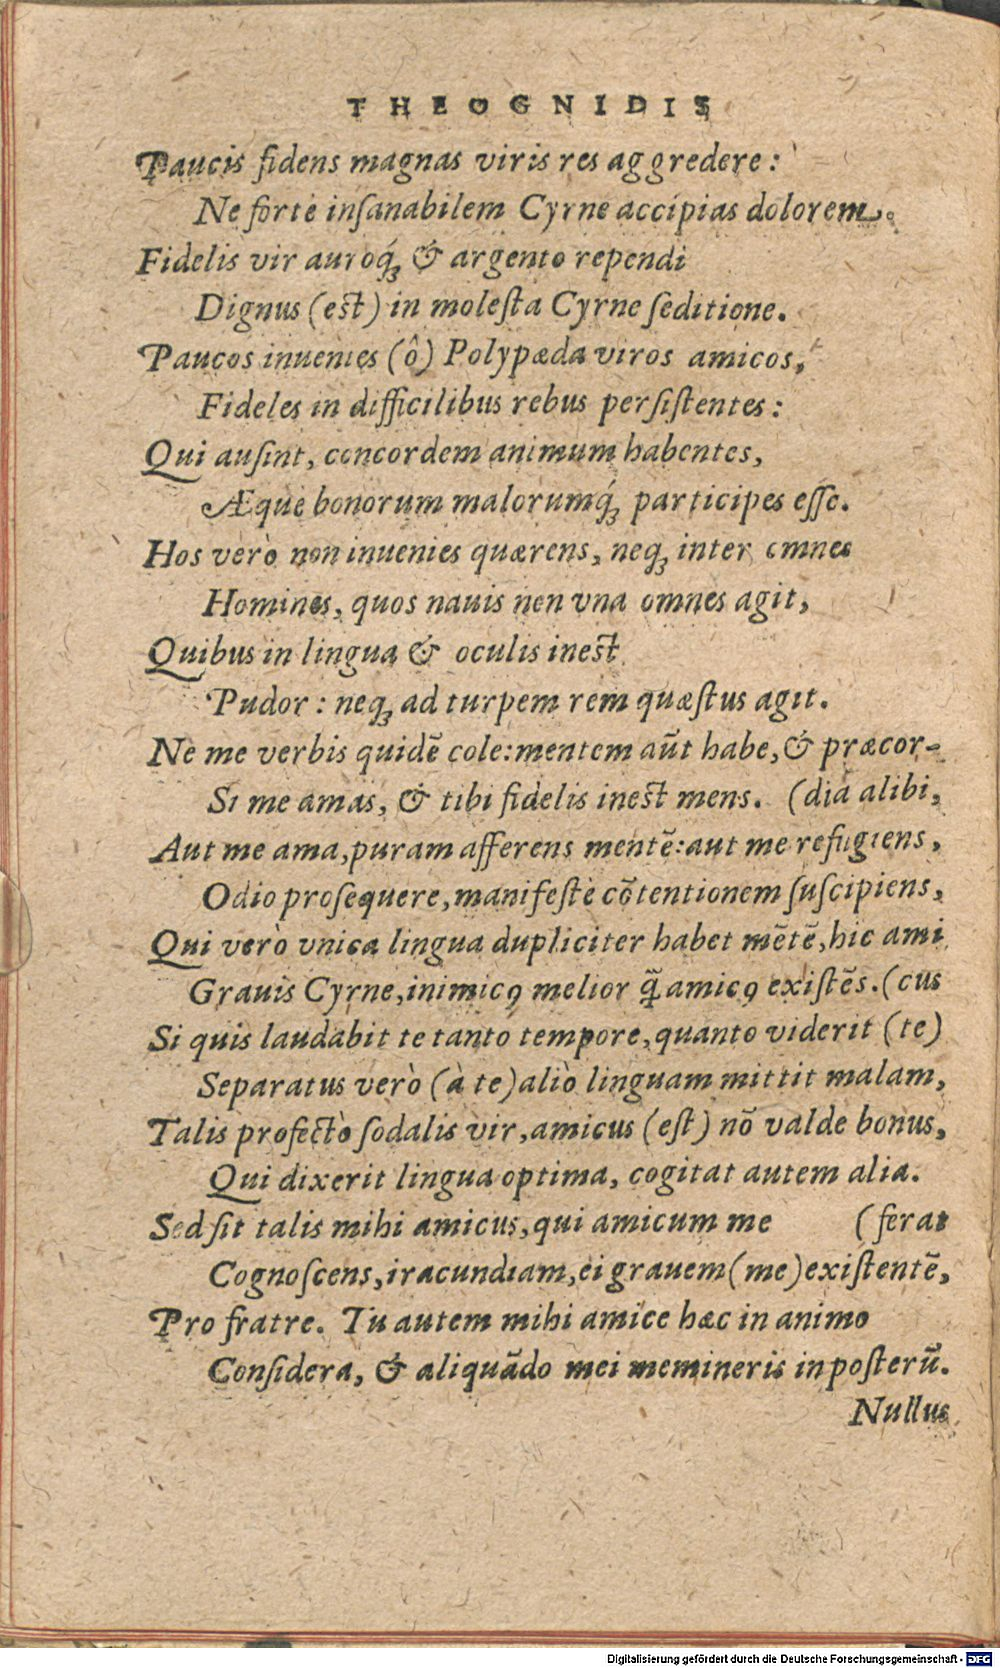 THEOGNIDIS
Paucis fidens magnas viris res aggredere:
Ne fortè inſanabilem Cyrne accípias dolorem.
Fidelis vir auroq́ꝫ & argento rependi
Dignus (est) in moleſta Cyrne ſeditione.
Paucos inuenies (ô) Polypæda viros amicos,
Fideles in difficilibus rebus perſiſtentes:
Qui auſint, concordem animum habentes,
Æquè bonorum malorumq́ꝫ participes eſſe.
Hos verò non inuenies quærens, neqꝫ inter omnes
Homines, quos nauis non vna omnes agit,
Quibus in lingua & oculis inest
Pudor: neqꝫ ad turpem rem quæſtus agit.
Ne me verbis quidē cole: mentem aūt habe, & præcor-
Si me amas, & tibi fidelis inest mens. (dia alibi,
Aut me ama, puram afferens mentē: aut me refugiens,
Odio proſequere, manifeſtè cōtentionem ſuſcipiens,
Qui verò vnica lingua dupliciter habet mētē, hic ami
Grauis Cyrne, inimicꝯ melior q̄ amicꝯ exiſtēs. (cus
Si quis laudabit te tanto tempore, quanto viderit (te)
Separatus verò (à te) aliò linguam mittit malam,
Talis profectò ſodalis vir, amicus (eſt) nō valde bonus,
Qui dixerit lingua optima, cogitat autem alia.
Sed ſit talis mihi amicus, qui amicum me (ferat
Cognoſcens, iracundiam, ei grauem (me) exiſtentē,
Pro fratre. Tu autem mihi amice hæc in animo
Conſidera, & aliquādo mei memineris in poſterū.
Nullus
Digitalisierung gefördert durch die Deutsche Forschungsgemeinschaft - DFG